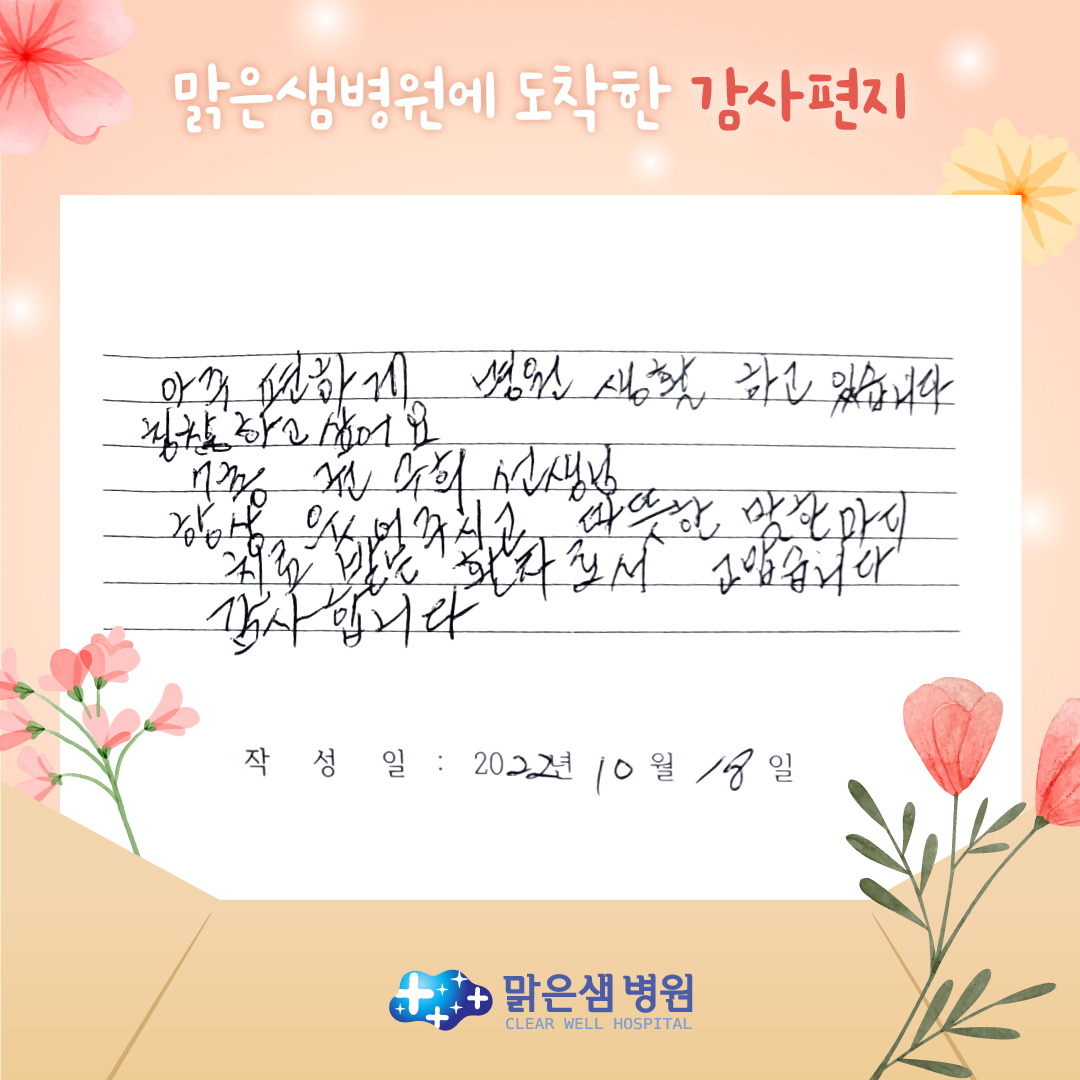 맑은샘병원에 도착한 감사편지
아주 편하게 병원 생활 하고 있습니다
칭찬 하고 싶어요
7층 권 수희 선생님
항상 웃어주시고 따뜻한 말한마디
치료 받는 환자로서 고맙습니다
감사합니다
작 성 일 : 2022년 10월 18일
맑은샘 병원
CLEAR WELL HOSPITAL